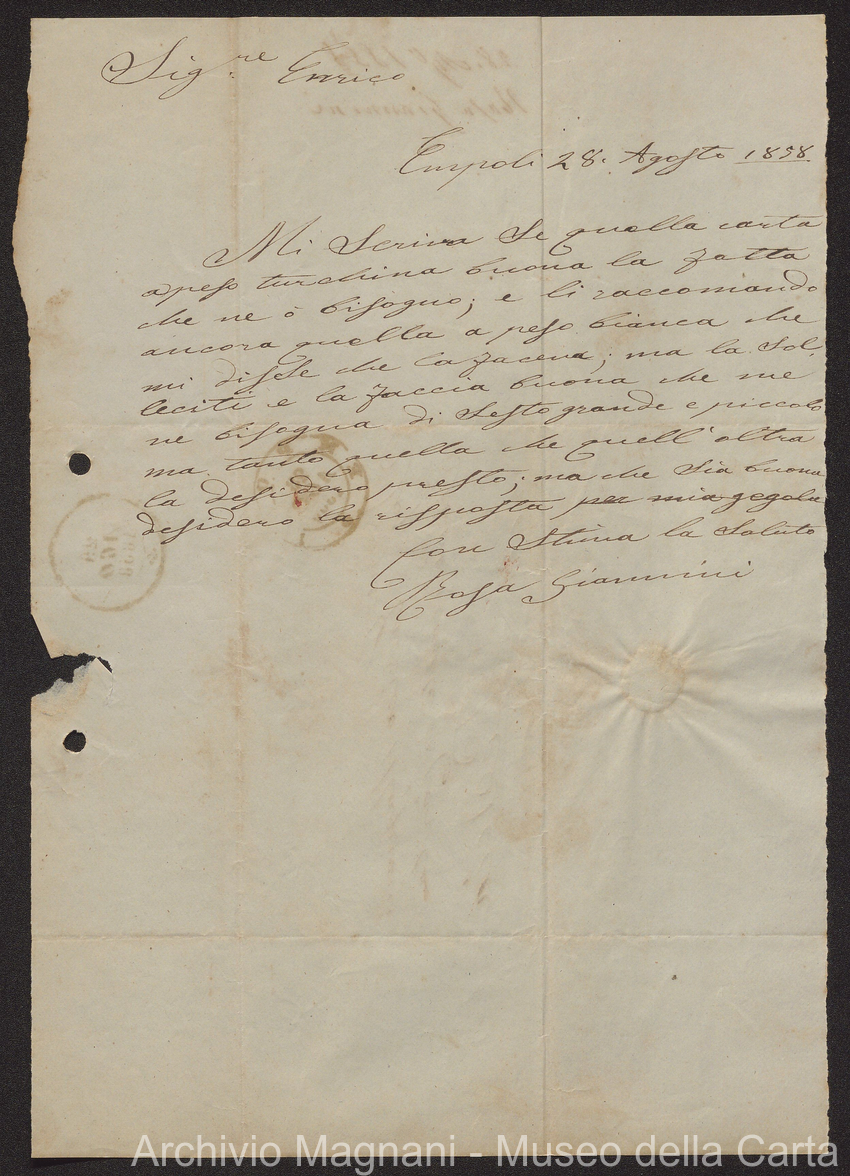 Sig.re Enrico
Empoli 28. Agosto 1858
Mi Scriva Se quella carta
a peso turchina buona la fatta
che ne ò bisogno; e li raccomando
ancora quella a peso bianca che
mi disse che la faceva; ma la Sol-
leciti e la faccia buona che me
ne bisogna di Sesto grande e piccolo
ma tanto quella che quell'altra
la desidero presto; ma che Sia buona
desidero la risposta per mia regola
Con Stima la Saluto
Rosa Giannini
Archivio Magnani - Museo della Carta